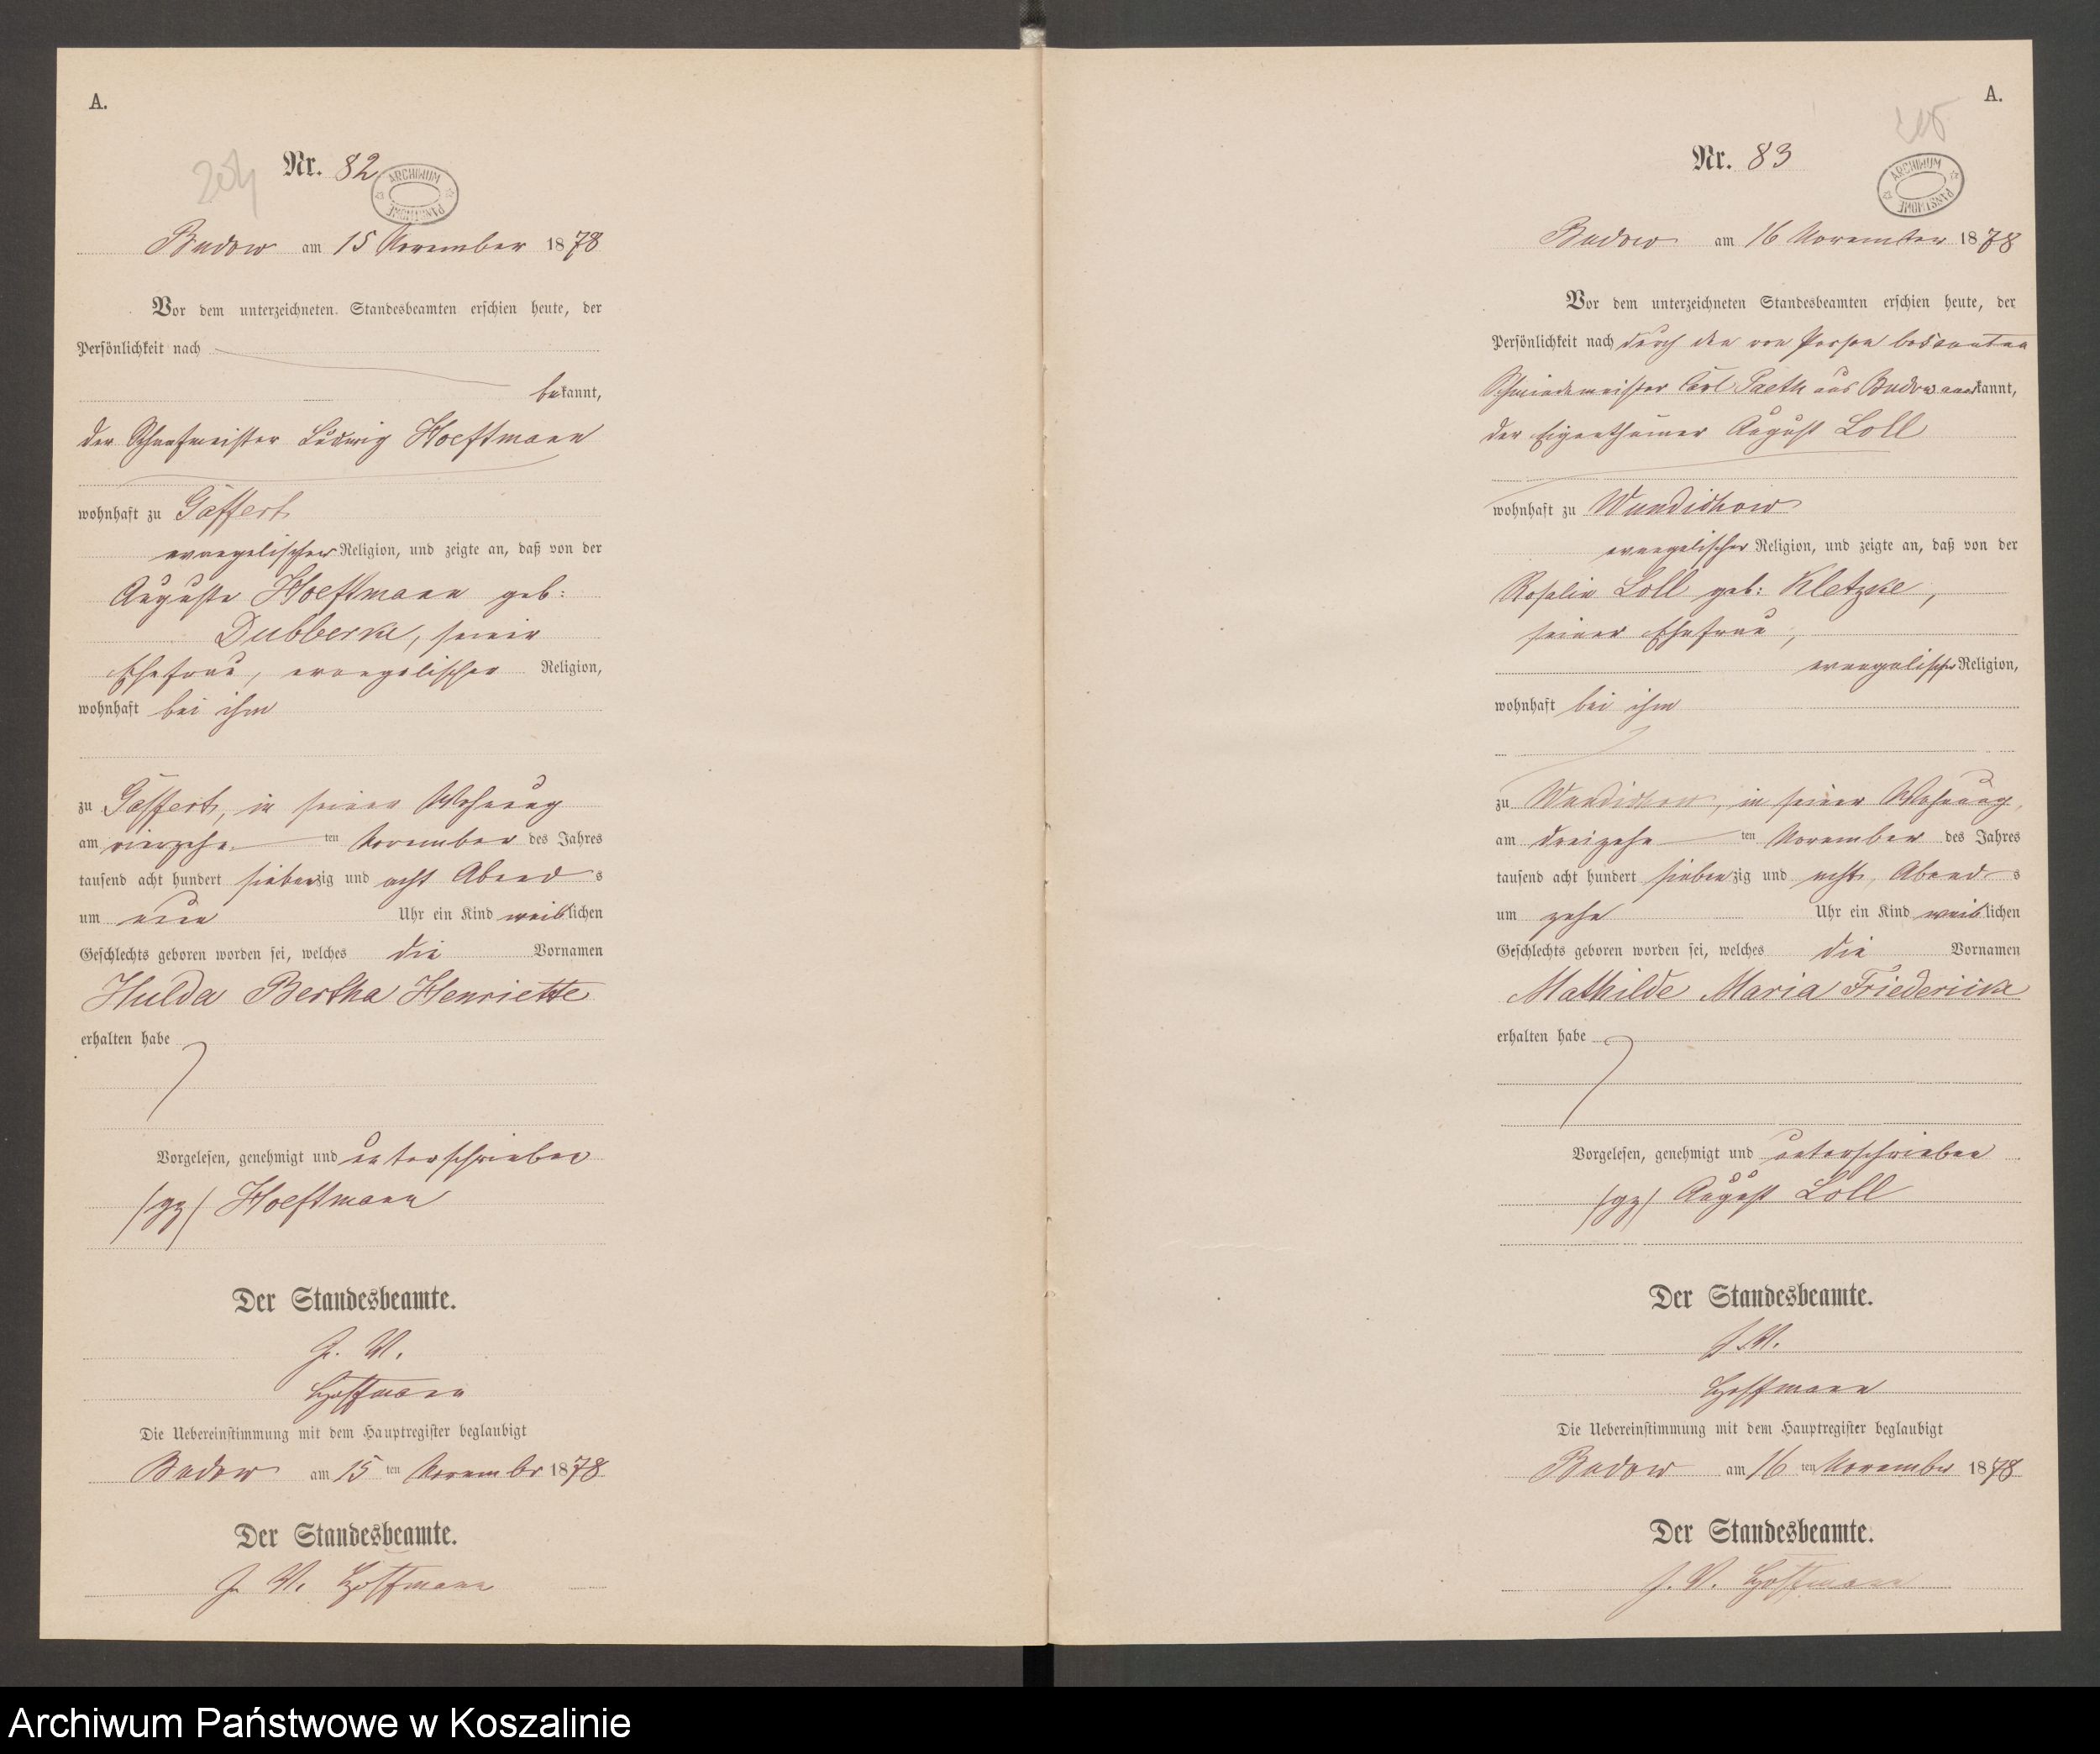 A.
204
Nr. 82
ARCHIWUM PAŃSTWOWE
Budow am 15 November 1878
Vor dem unterzeichneten Standesbeamten erschien heute, der
Persönlichkeit nach
bekannt,
der Schafmeister Ludwig Hoeftmann
wohnhaft zu Gaffert
evangelischer Religion, und zeigte an, daß von der
Auguste Hoeftmann geb:
Dubberke, seiner
Ehefrau, evangelischer Religion,
wohnhaft bei ihm
zu Gaffert, in seiner Wohnung
am vierzehn ten November des Jahres
tausend acht hundert siebenzig und acht Abends
um neun Uhr ein Kind weiblichen
Geschlechts geboren worden sei, welches die Vornamen
Hulda Bertha Henriette
erhalten habe
Vorgelesen, genehmigt und unterschrieben
(gz) Hoeftmann
Der Standesbeamte.
J. V.
Hoffmann
Die Uebereinstimmung mit dem Hauptregister beglaubigt
Budow am 15 ten Novembr 1878
Der Standesbeamte.
J. V. Hoffmann
A.
205
Nr. 83
ARCHIWUM PAŃSTWOWE
Budow am 16 November 1878
Vor dem unterzeichneten Standesbeamten erschien heute, der
Persönlichkeit nach durch den von Person bekannten
Schmiedemeister Carl Paeth aus Budow anerkannt,
der Eigenthümer August Loll
wohnhaft zu Wundichow
evangelischer Religion, und zeigte an, daß von der
Rosalie Loll geb: Kletzke,
seiner Ehefrau,
evangelischer Religion,
wohnhaft bei ihm
zu Wundichow, in seiner Wohnung,
am dreizehn ten November des Jahres
tausend acht hundert siebenzig und acht, Abends
um zehn Uhr ein Kind weiblichen
Geschlechts geboren worden sei, welches die Vornamen
Mathilde Maria Friedericke
erhalten habe
Vorgelesen, genehmigt und unterschrieben
(gz) August Loll
Der Standesbeamte.
J. V.
Hoffmann
Die Uebereinstimmung mit dem Hauptregister beglaubigt
Budow am 16 ten November 1878
Der Standesbeamte.
J. V. Hoffmann
Archiwum Państwowe w Koszalinie